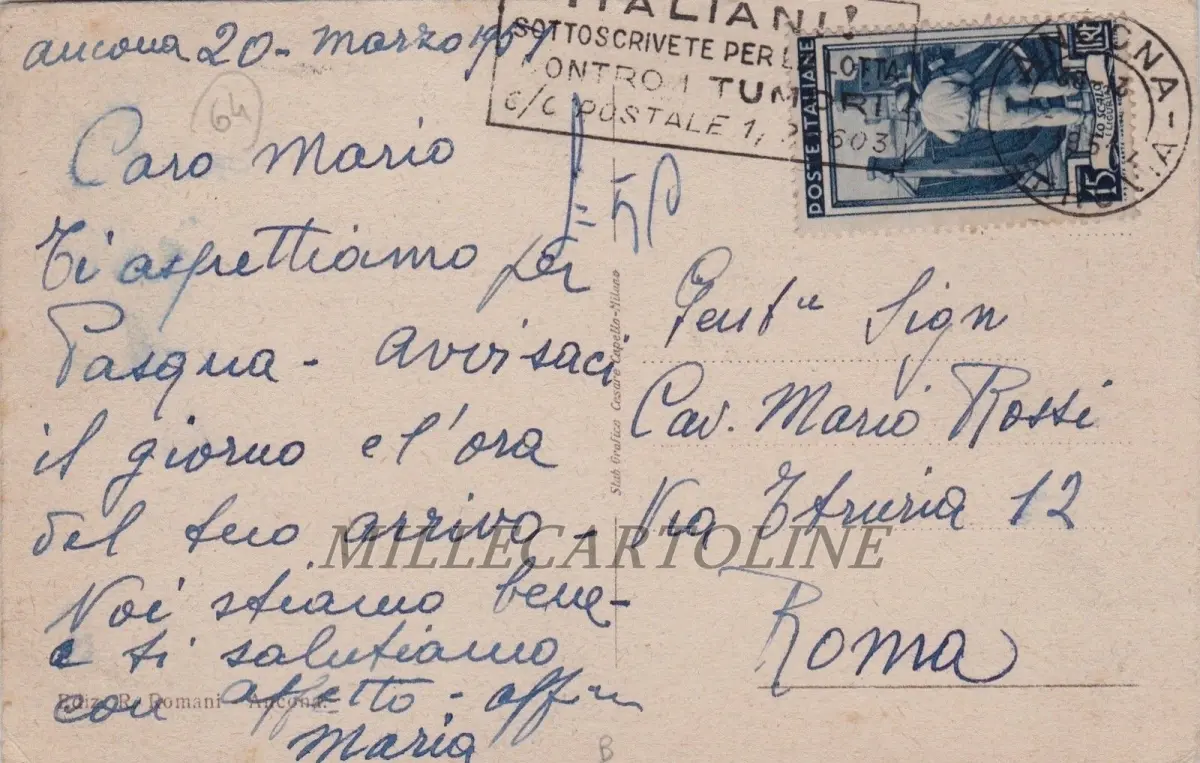 ancona 20 - marzo 1951
64
Caro Mario
Ti aspettiamo per
Pasqua - avvisaci
il giorno e l'ora
del tuo arrivo -
Noi stiamo bene -
e ti salutiamo
con affetto - aff.
Maria
Ediz. R. Romani - Ancona
B
Stab. Grafico Cesare Capello - Milano
ITALIANI!
SOTTOSCRIVETE PER LA LOTTA
CONTRO I TUMORI
C/C POSTALE 1/ 603
POSTE ITALIANE
LO SCALO
LIGURIA
15
ANCONA
Sign
Cav. Mario Rossi
Via Etruria 12
Roma
MILLECARTOLINE